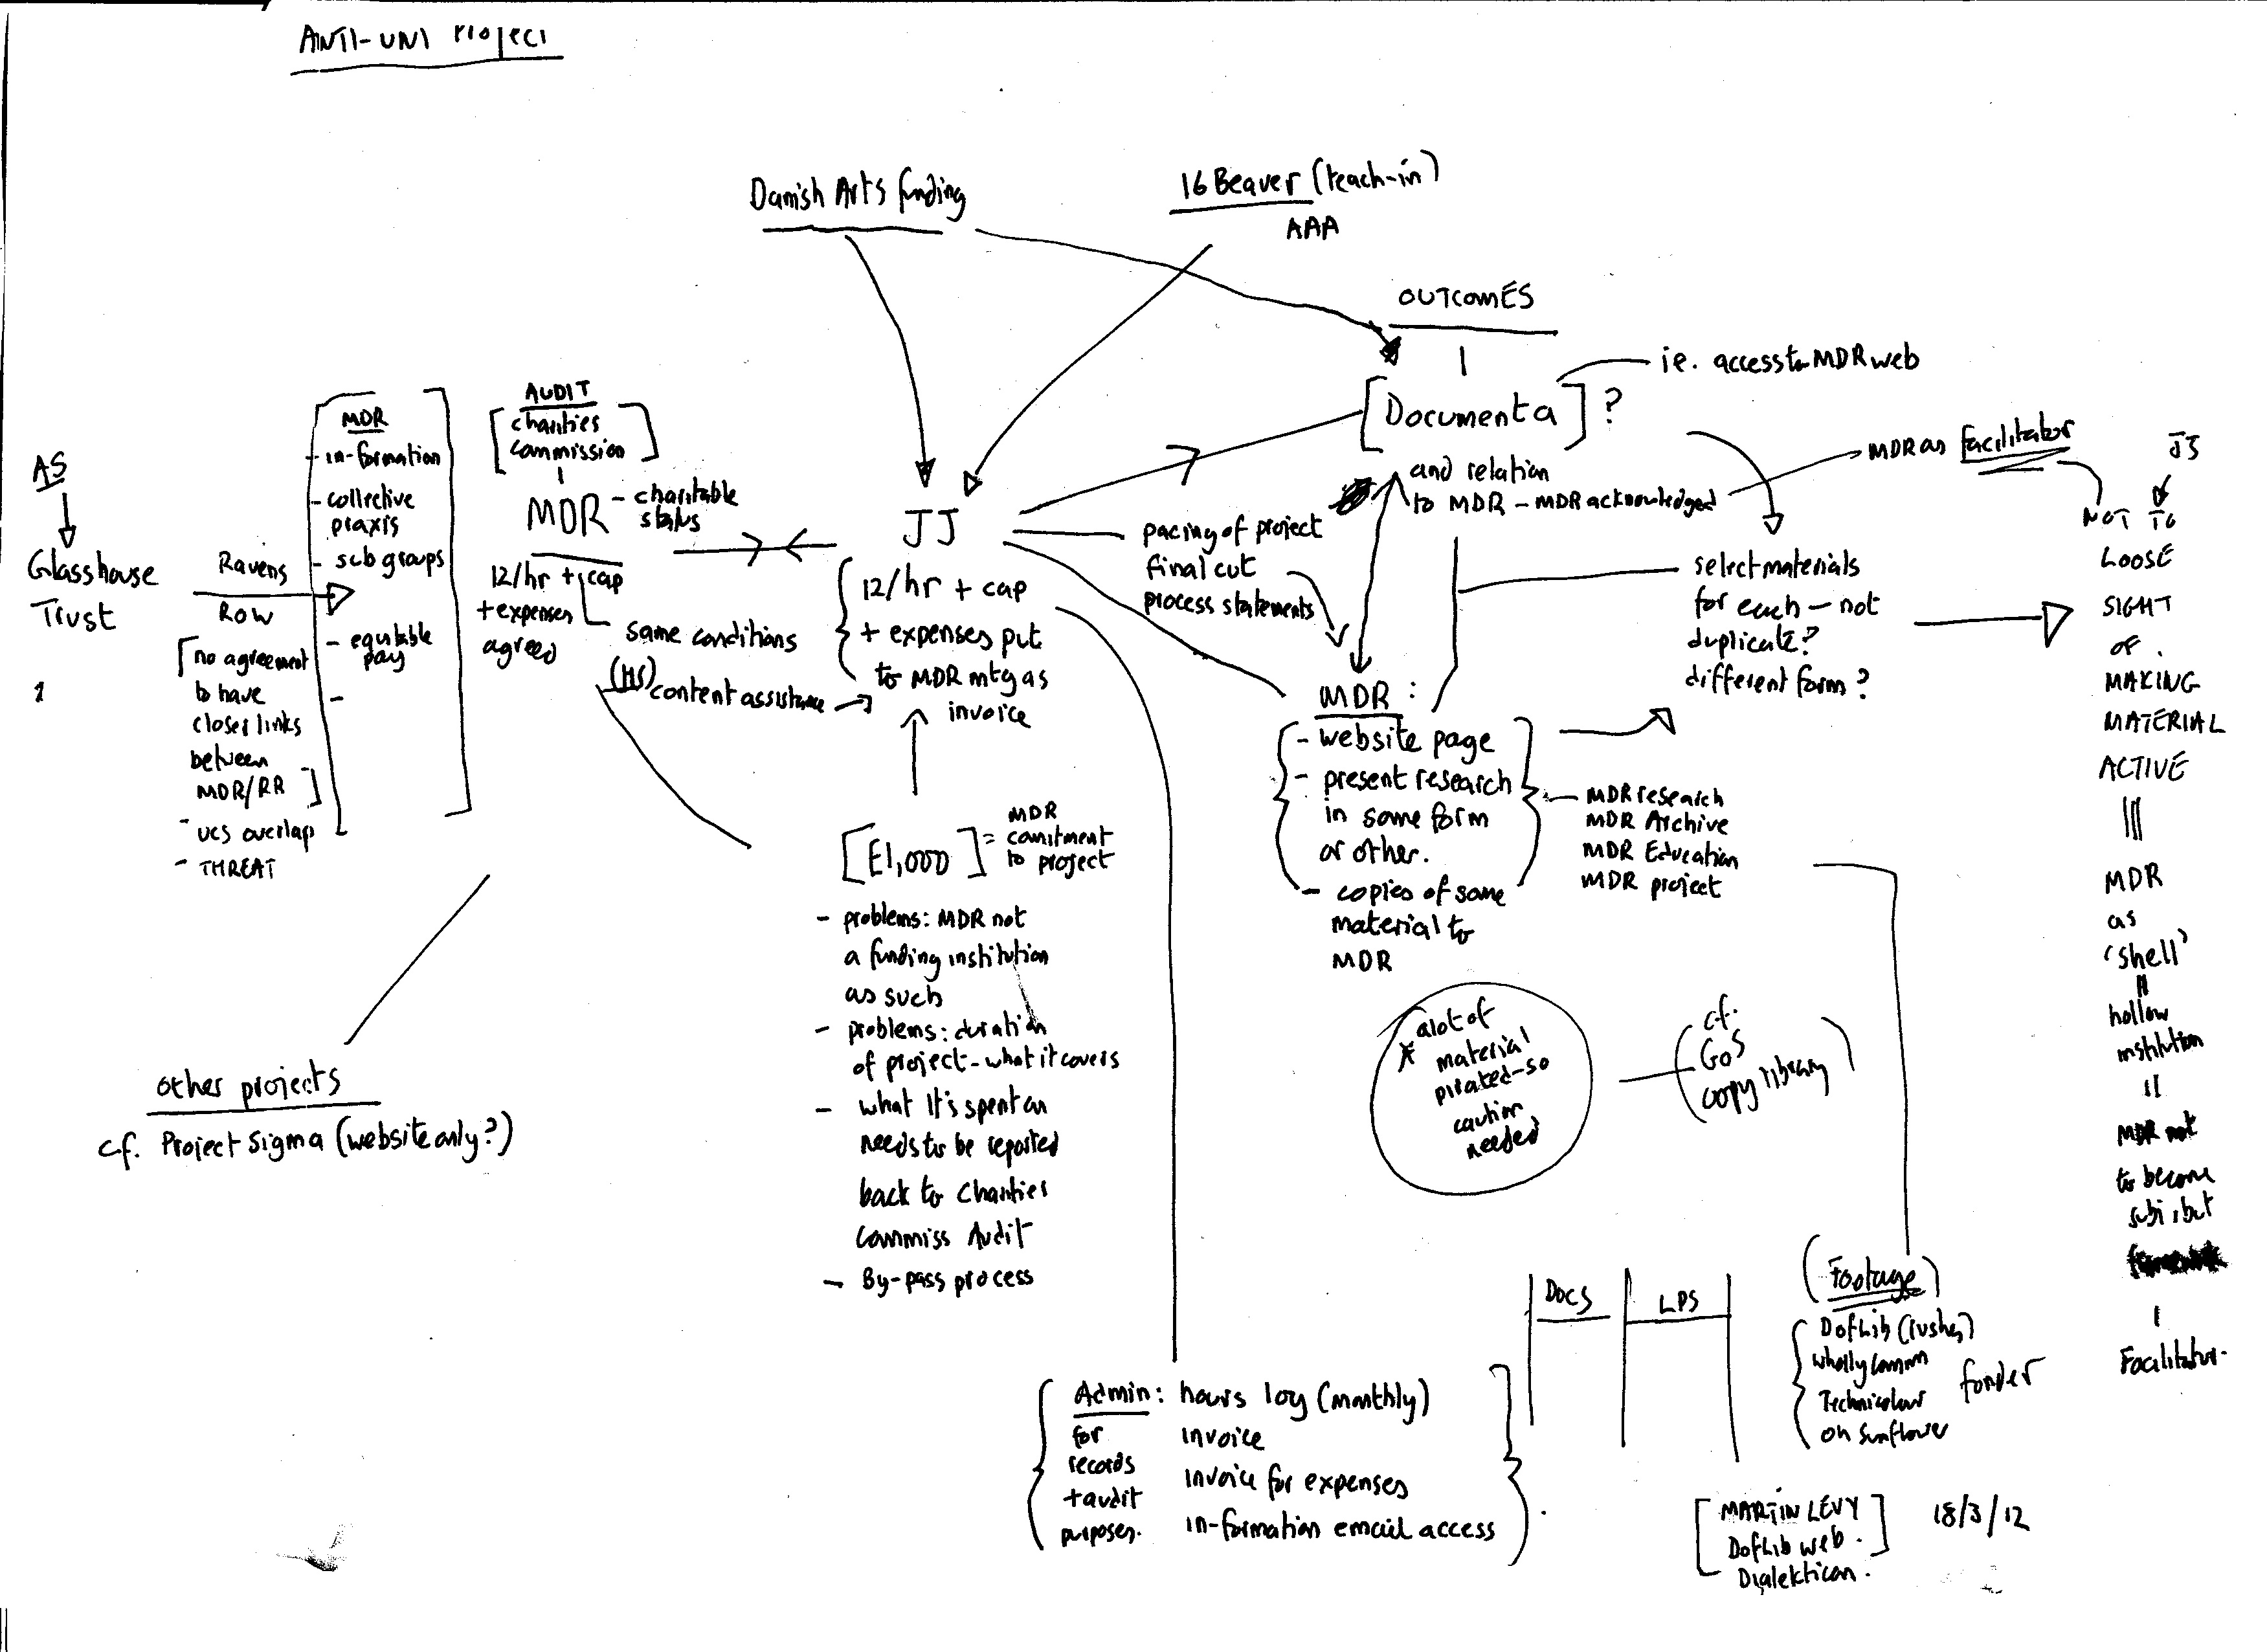 ANTI-UNI PROJECT
Danish Arts funding
16 Beaver (teach-in)
AAA
OUTCOMES
[Documenta]?
ie. access to MDR web
and relation
to MDR - MDR acknowledged
MDR as facilitator
JJ
NOT TO
LOOSE
SIGHT
OF.
MAKING
MATERIAL
ACTIVE
MDR
as
'shell'
=
hollow
institution
=
MDR not
to become
but
Facilitator.
AS
Glasshouse
Trust
Ravens
Row
[no agreement
to have
closer links
between
MDR/RR]
- UCS overlap
- THREAT
1
MDR
- in-formation
- collective
praxis
- sub groups
- equitable
pay
-
AUDIT
[charities
commission]
MDR - charitable
status
12/hr + cap
+ expenses
agreed
same conditions
content assistance
JJ
12/hr + cap
+ expenses put
to MDR mtg as
invoice
[£1,000] = MDR
comitment
to project
- problems: MDR not
a funding institution
as such
- problems: duration
of project - what it covers
- what it's spent on
needs to be reported
back to Charities
Commiss Audit
- By-pass process
pacing of project
final cut
process statements
MDR:
- website page
- present research
in some form
or other.
- copies of some
material to
MDR
MDR research
MDR Archive
MDR Education
MDR project
select materials
for each - not
duplicate?
different form?
* alot of
material
pirated - so
caution
needed
(cf.
GoS
copy library)
other projects
cf. Project Sigma (website only?)
Admin: hours log (monthly)
for invoice
records invoice for expenses
+ audit in-formation email access
purposes.
DOCS
LPS
(Footage)
DofLib (rushes)
Wholly Commn
Technicolour
on Sunflower
[MARTIN LEVY
DofLib web.]
Dialektikon.
18/3/12